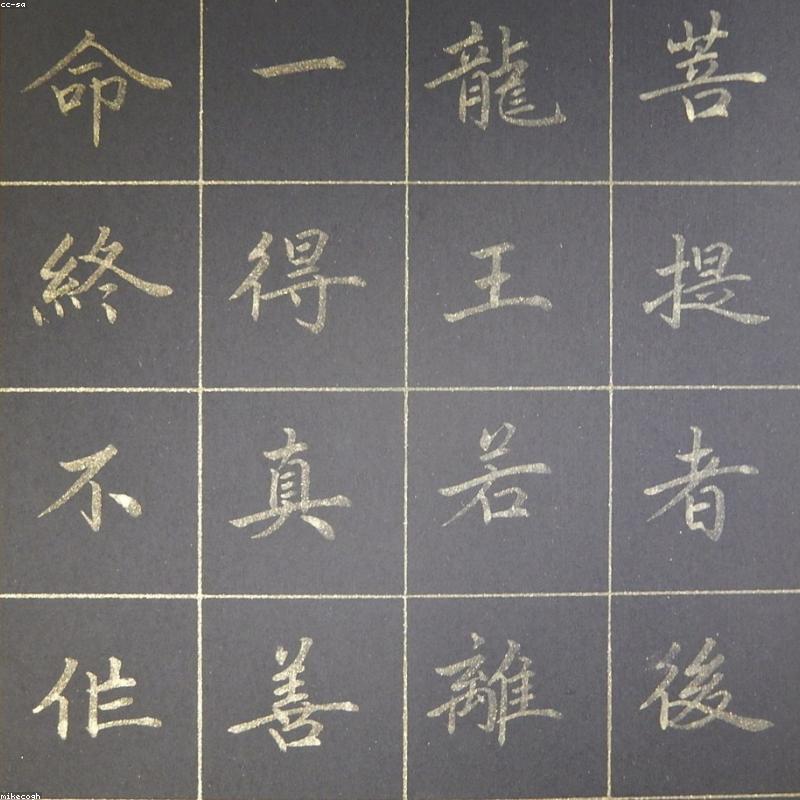 cc-sa
菩提者後
龍王若離
一得真善
命終不作
mikecogh